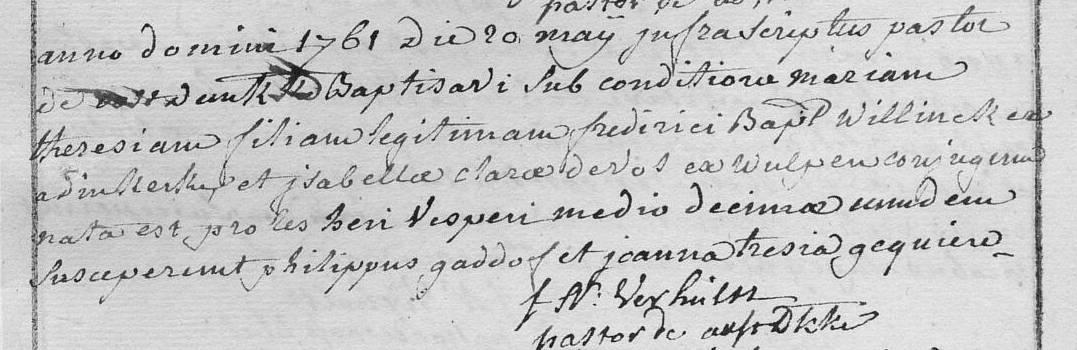 pastor de
anno domini 1761 die 20 maÿ jnfrascriptus pastor
de Baptisavi sub conditione mariam
theresiam filiam legitimam frederici Bapt Willinck ex
adinkerke et jsabellæ claræ devos ex wulpen conjugum
nata est proles heri vesperi medio decimæ eamdem
susceperunt philippus gaddof et joanna tresia gequiere
f N: Verhulst
pastor de